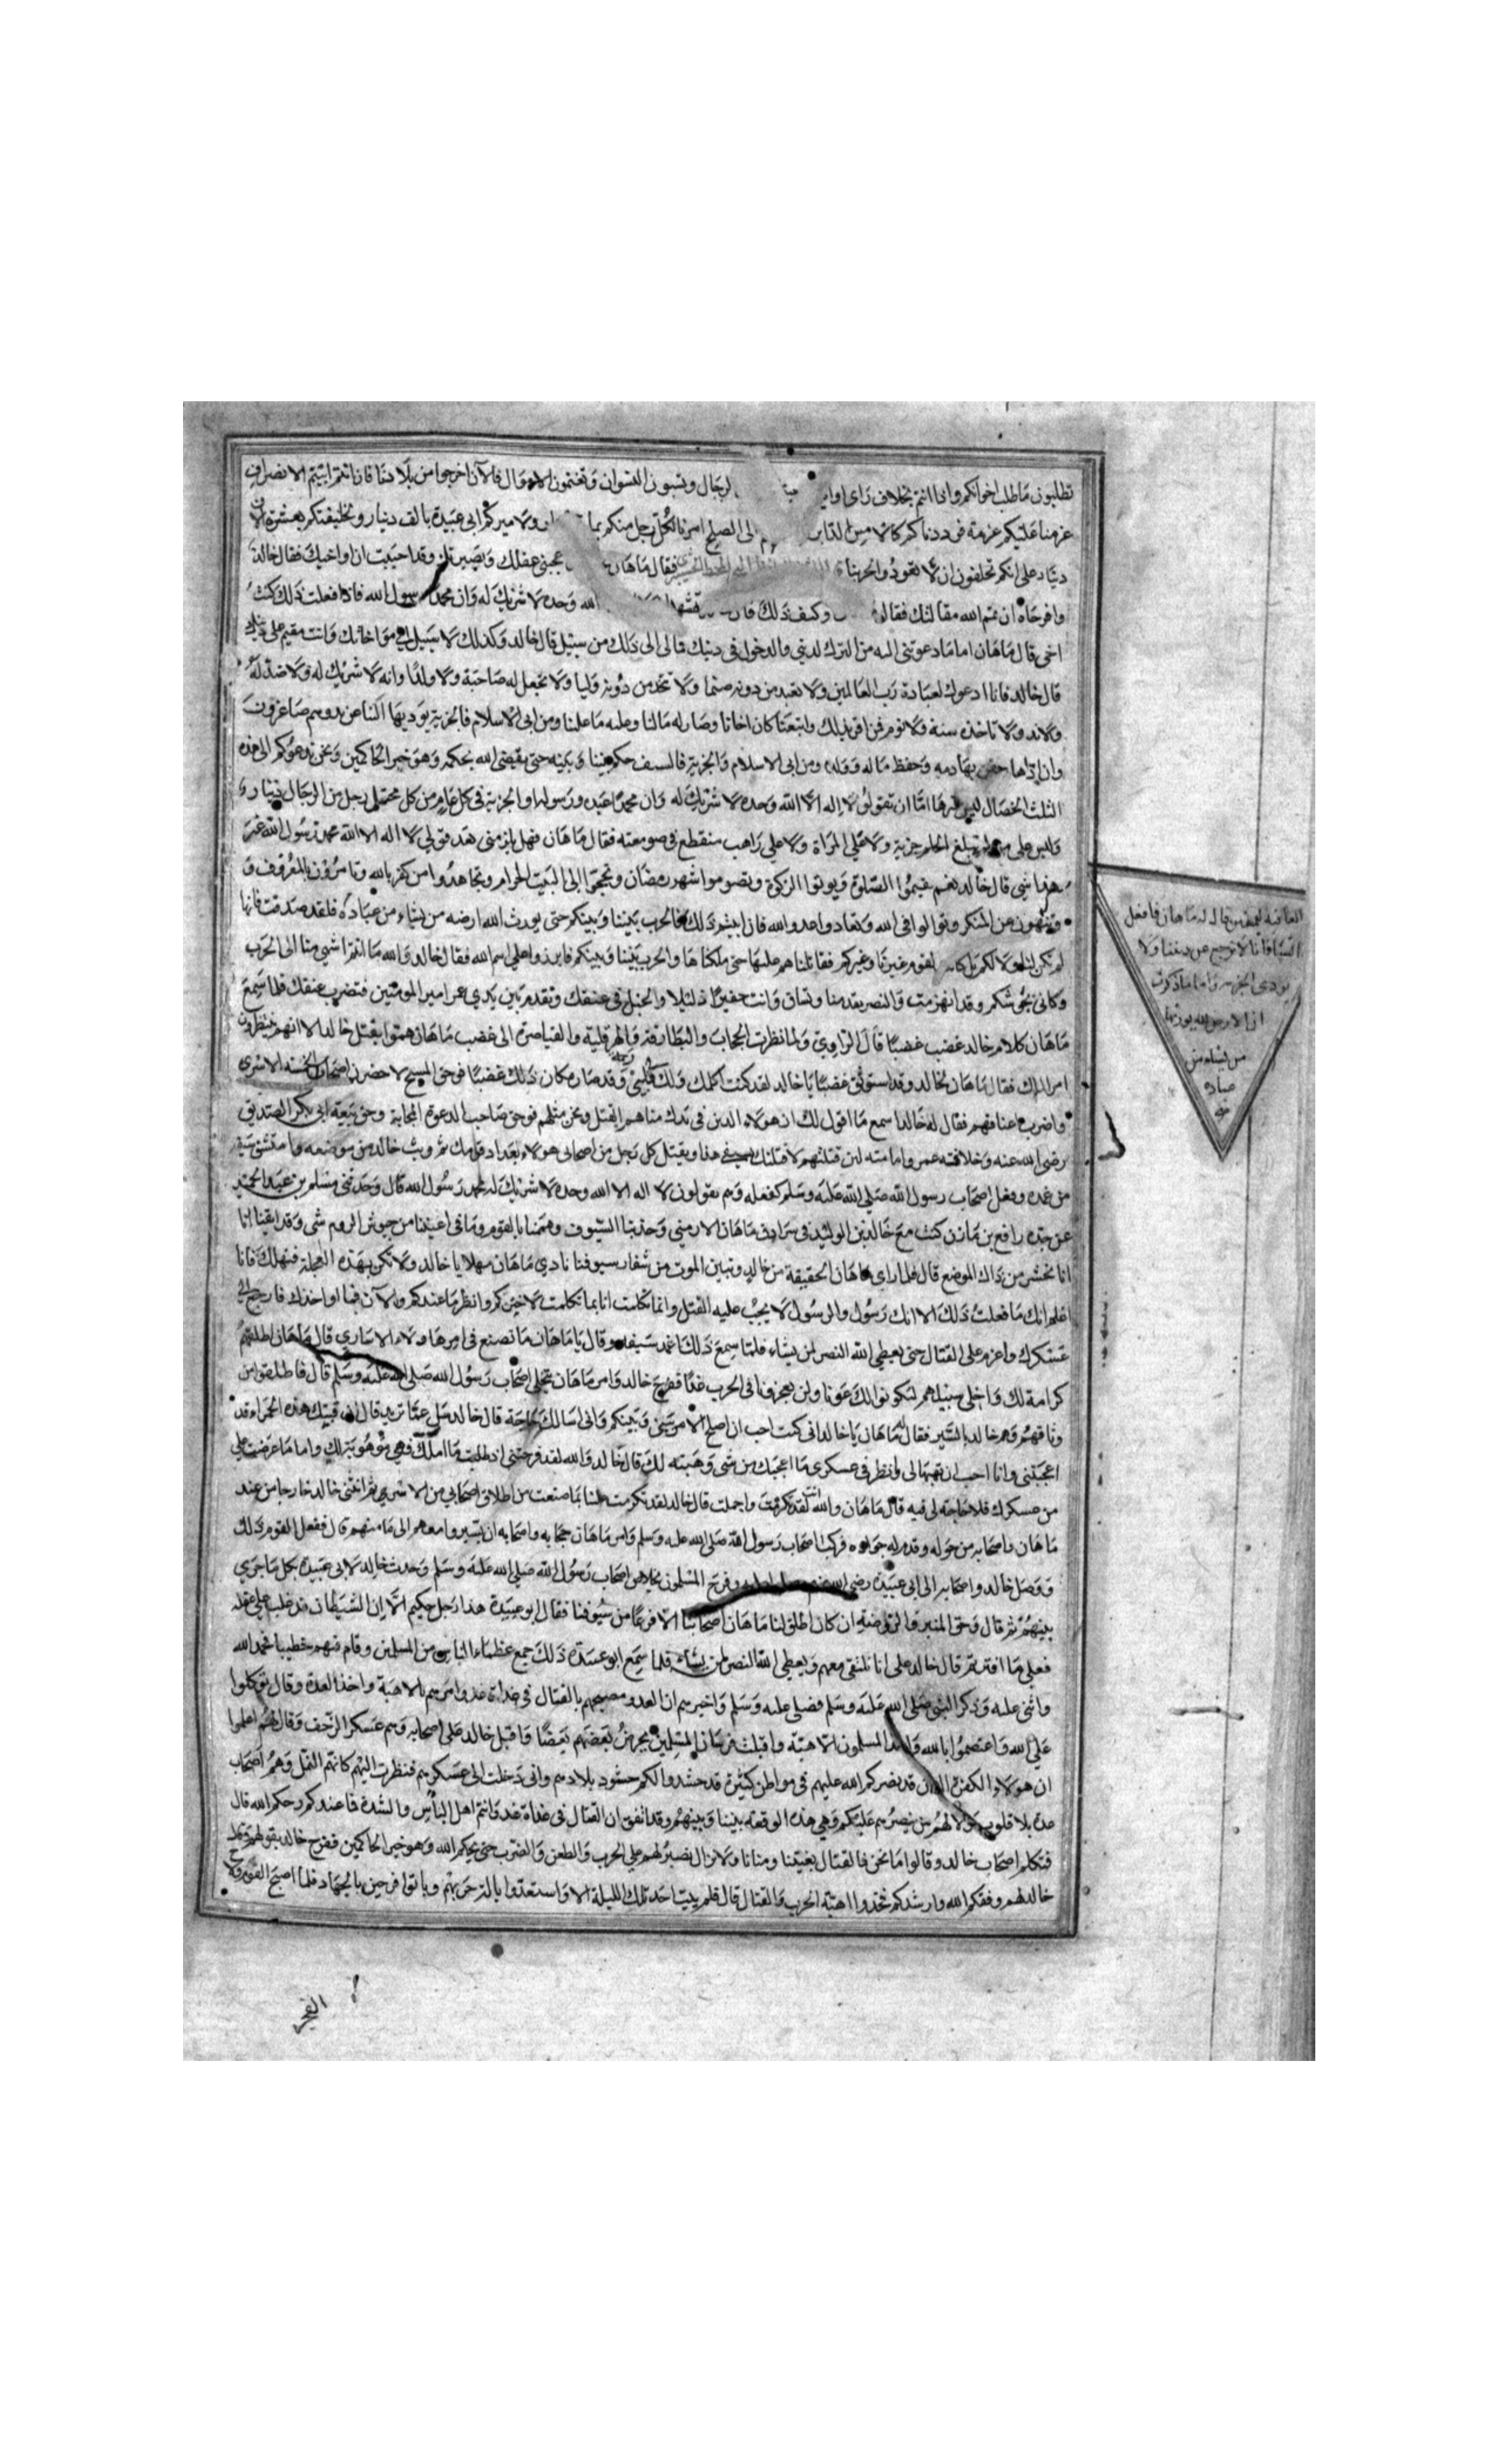 تطلبون ما طلب اخوانكم واذا انتم بخلاف راى اوليك لرجال وتسبون النسوان وتغنمون الا وال فالآن اخرجوا من بلادنا فان انتم ابيتم الانصراف
عزمنا عليكم عزمة فى ردناكم كالامس الى الصلح امرنا لكل رجل منكم بما ولاميركم ابى عبيدة بالف دينار ولخليفتكم بعشرة الاف
دينار على انكم تحلفون ان لا تعودوا لحربنا فقال ماهان عجبنى عقلك وبصيرتك وقد احببت ان اواخيك فقال خالد
وافرحاه ان تمم الله مقالتك فقال وكيف ذلك قال الله وحده لا شريك له وان محمدا رسول الله فاذا فعلت ذلك كنت
اخى قال ماهان اما ما دعوتنى اليه من الترك لدينى والدخول فى دينك فما لى الى ذلك من سبيل قال خالد وكذلك لا سبيل الى مواخاتك وانت مقيم على
قال خالد فانا ادعوك لعبادة رب العالمين ولا تعبد من دونه صنما ولا تتخذ من دونه وليا ولا تجعل له صاحبة ولا ولدا وانه لا شريك له ولا ضد له
ولا ند ولا تاخذه سنة ولا نوم فمن اقر بذلك واتبعنا كان اخانا وصار له ما لنا وعليه ما علينا ومن ابى الاسلام فالجزية يوديها الينا عن يد وهم صاغرون
وان اداها حقن بها دمه وحفظ ماله وولده ومن ابى الاسلام والجزية فالسيف حكم بيننا وبينه حتى يقضى الله بحكمه وهو خير الحاكمين ونحن ندعوكم الى هذه
الثلث الخصال ليس غيرها اما ان تقولوا لا اله الا الله وحده لا شريك له وان محمدا عبده ورسوله او الجزية فى كل عام من كل محتلم رجل من الرجال دينار
وليس على من لم يبلغ الحلم جزية ولا على المراة ولا على راهب منقطع فى صومعته فقال ماهان فهل يلزمنى بعد قولى لا اله الا الله محمد رسول الله غير
هذا شى قال خالد نعم تقيموا الصلوة وتوتوا الزكوة وتصوموا شهر رمضان وتحجوا الى البيت الحرام وتجاهدوا من كفر بالله وتامرون بالمعروف و
وتنهون عن المنكر وتوالوا فى الله وتعادوا عدو الله فان ابيتم ذلك فالحرب بيننا وبينكم حتى يورث الله ارضه من يشاء من عباده فلقد صدقت فانها
لم تكن لنا ولا لكم بل كانت لقوم غيرنا وغيركم فقاتلناهم عليها حتى ملكناها والحرب بيننا وبينكم فابرزوا على اسم الله فقال خالد والله ما انتم اشهى منا الى الحرب
وكانى بجموشكم وقد انهزمت والنصر يقدمنا وتساق وانت حقيرا ذليلا والحبل فى عنقك وتقدم بين يدي عمر امير المومنين فتضرب عنقك فلما سمع
ماهان كلام خالد غضب غضبا قال الراوي ولما نظرت الحجاب والبطارقة والهرقلية والقياصرة الى غضب ماهان هموا بقتل خالد الا انهم ينتظرون
امر الملك فقال ماهان لخالد وقد استوثق غضبا يا خالد لقد كنت اكلمك وقد صار مكان ذلك غضبا فوحق المسيح لاحضرن اصحابك الخمسة الاسرى
واضرب اعناقهم فقال له خالد اسمع ما اقول لك ان هولاء الذين فى يدك منا هم القتل ونحن مثلهم فوحق صاحب الدعوة المجابة وحق بيعة ابى بكر الصديق
رضى الله عنه وخلافة عمر وامامته لئن قتلتهم لاقتلنك بسيفى هذا ويقتل كل رجل من اصحابى هولاء بعداد قومك ثم وثب خالد من موضعه وامتشق سيفه
من غمده وفعل اصحاب رسول الله صلى الله عليه وسلم كفعله وهم يقولون لا اله الا الله وحده لا شريك له محمد رسول الله قال وحدثنى مسلم بن عبد الحميد
عن جده رافع بن مازن كنت مع خالد بن الوليد فى سرادق ماهان الارمنى وجذبنا السيوف وهممنا بالقوم وما فى اعيننا من جيوش الروم شى وقد ايقنا انا
انا نحشر من ذاك الموضع قال فلما راي ماهان الحقيقة من خالد وتبين الموت من شفار سيوفنا نادي ماهان مهلا يا خالد ولا تكن بهذه العجلة فتهلك فانا
اعلم انك ما فعلت ذلك الا انك رسول والرسول لا يجب عليه القتل وانما تكلمت انا بما تكلمت لاخبركم وانظر ما عندكم والآن فما اواخذك فارجع الى
عسكرك واعزم على القتال حتى يعطي الله النصر لمن يشاء فلما سمع ذلك اغمد سيفه وقال يا ماهان ما تصنع فى امر هاولاء الاسارى قال ماهان اطلقهم
كرامة لك واخلى سبيلهم ليكونوا لك عونا ولن يعجزونا فى الحرب غدا ففرح خالد وامر ماهان بتخلى اصحاب رسول الله صلى الله عليه وسلم قال فاطلقوا من
وثاقهم وهم خالد بالسير فقال له ماهان يا خالد انى كنت احب ان اصلح الامر بينى وبينكم وانى اسالك حاجة قال خالد سل عما تريد قال ان قبتك هذه الحمراء قد
اعجبتنى وانا احب ان تهبها لى وانظر فى عسكرى ما اعجبك من شى وهبته لك قال خالد والله لقد فرحتنى اذ طلبت ما املك فهى موهوبة لك واما ما عرضت على
من عسكرك فلا حاجة لى فيه قال ماهان والله لقد تكرمت واجملت قال خالد لقد تكرمت علينا بما صنعت من اطلاق اصحابى من الاسرى ثم انثنى خالد خارجا من عند
ماهان واصحابه من حوله وقدم له جواده فركب اصحاب رسول الله صلى الله عليه وسلم وامر ماهان حجابه واصحابه ان يسيروا معهم الى مامنهم قال ففعل القوم ذلك
ووصل خالد واصحابه الى ابى عبيدة رضى الله عنهم وفرح المسلمون بخلاص اصحاب رسول الله صلى الله عليه وسلم وحدث خالد لابى عبيدة بكل ما جري
بينهم ثم قال وحق المنبر والروضة ان كان اطلق لنا ماهان اصحابنا الا فرعا من سيوفنا فقال ابو عبيدة هذا رجل حكيم الا ان الشيطان قد غلب على عقله
فعلى ما افترقتم قال خالد على انا نلتقى معهم ويعطى الله النصر لمن يشاء فلما سمع ابو عبيدة ذلك جمع عظماء الناس من المسلمين وقام فيهم خطيبا فحمد الله
واثنى عليه وذكر النبى صلى الله عليه وسلم فصلى عليه وسلم واخبرهم ان العدو مصبحهم بالقتال فى غداة غد وامرهم بالاهبة واخذ العدة وقال توكلوا
على الله واعتصموا بالله المسلمون الاهبة واقبلت فرسان المسلمين يحرض بعضهم بعضا واقبل خالد على اصحابه وهم عسكر الزحف وقال لهم اعلموا
ان هولاء الكفرة الذين قد نصركم الله عليهم فى مواطن كثيرة قد حشدوا لكم حشود بلادهم وانى دخلت الى عسكرهم فنظرت اليهم كانهم النمل وهم اصحاب
عدة بلا قلوب ولا لهم من ينصرهم عليكم وهي هذه الوقعة بيننا وبينهم وقد اتفق ان القتال فى غداة غد وانتم اهل الباس والشدة فما عندكم رحمكم الله قال
فتكلم اصحاب خالد وقالوا ما نحن فالقتال بغيتنا ومنانا ولا نزال نصبر لهم على الحرب والطعن والضرب حتى يحكم الله وهو خير الحاكمين ففرح خالد بقولهم
خالد لهم وفقكم الله وارشدكم فخذوا اهبة الحرب والقتال قال فلم يبت احد تلك الليلة الا واستعدوا بالة حربهم وباتوا فرحين بالجهاد فلما اصبح
قال له ماهان فافعل
فانا لا نرجع عن ديننا ولا
نودى الجزيه واما ما ذكرت
ان الارض لله يورثها
من يشاء من
عباده
الفجر